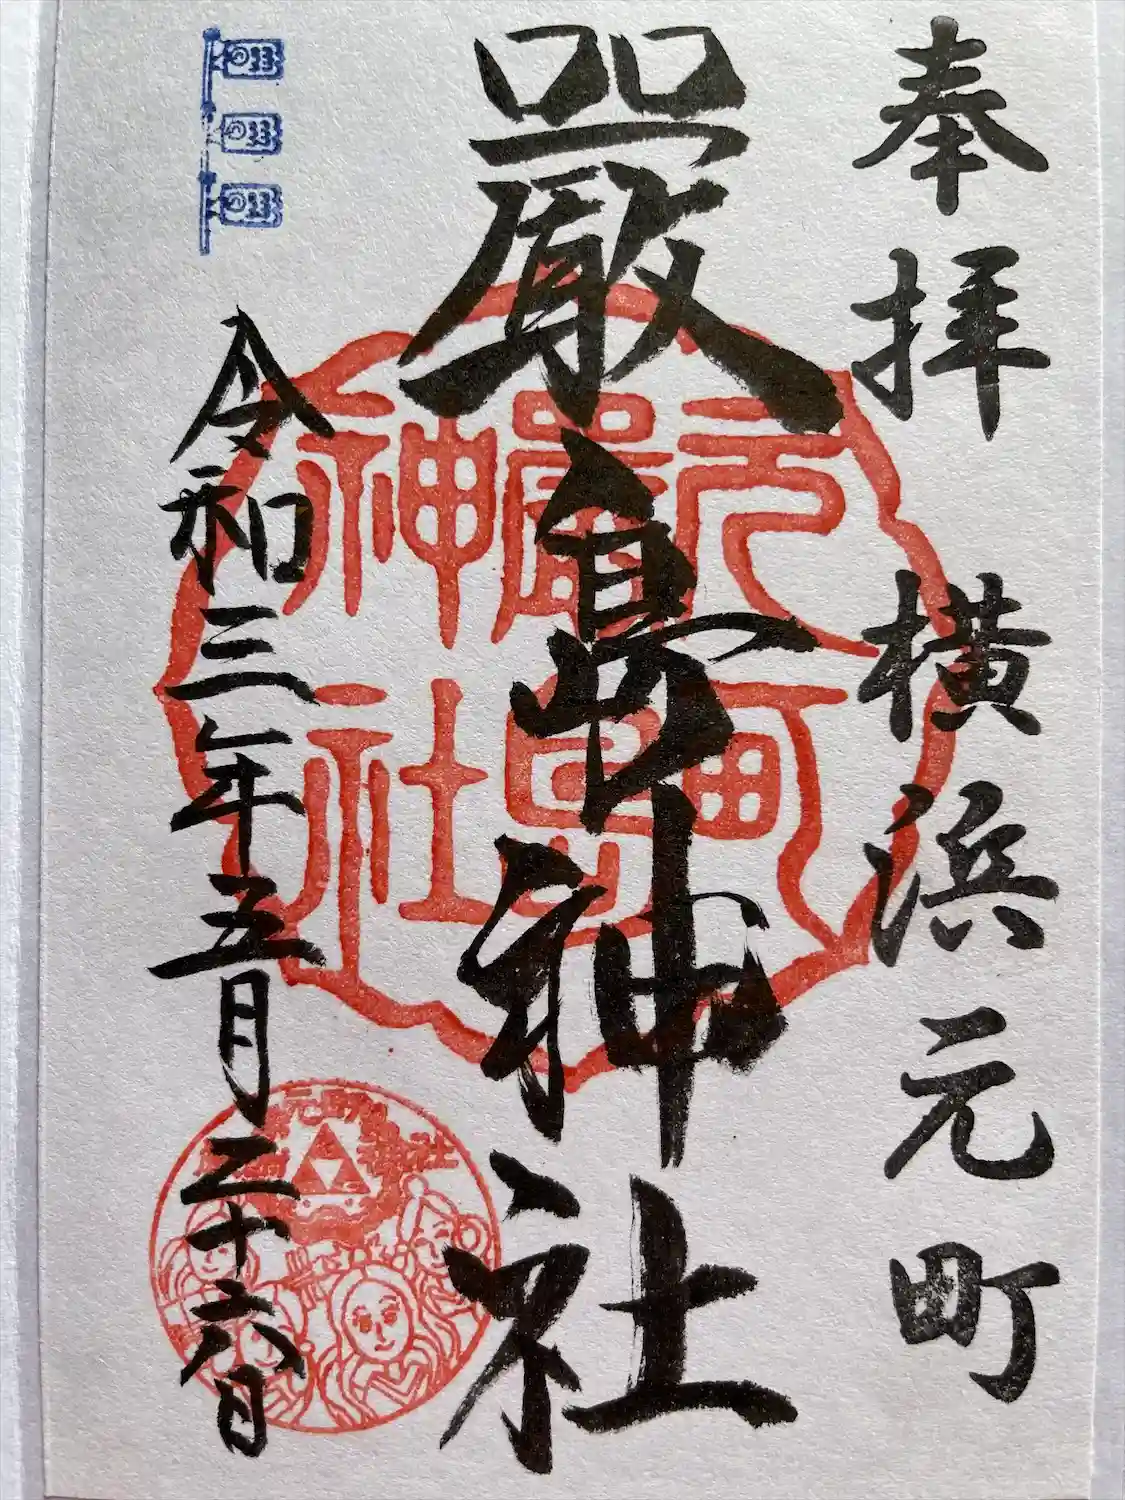 奉拝
横浜元町
嚴島神社
元町
嚴島
神社
令和三年五月二十六日